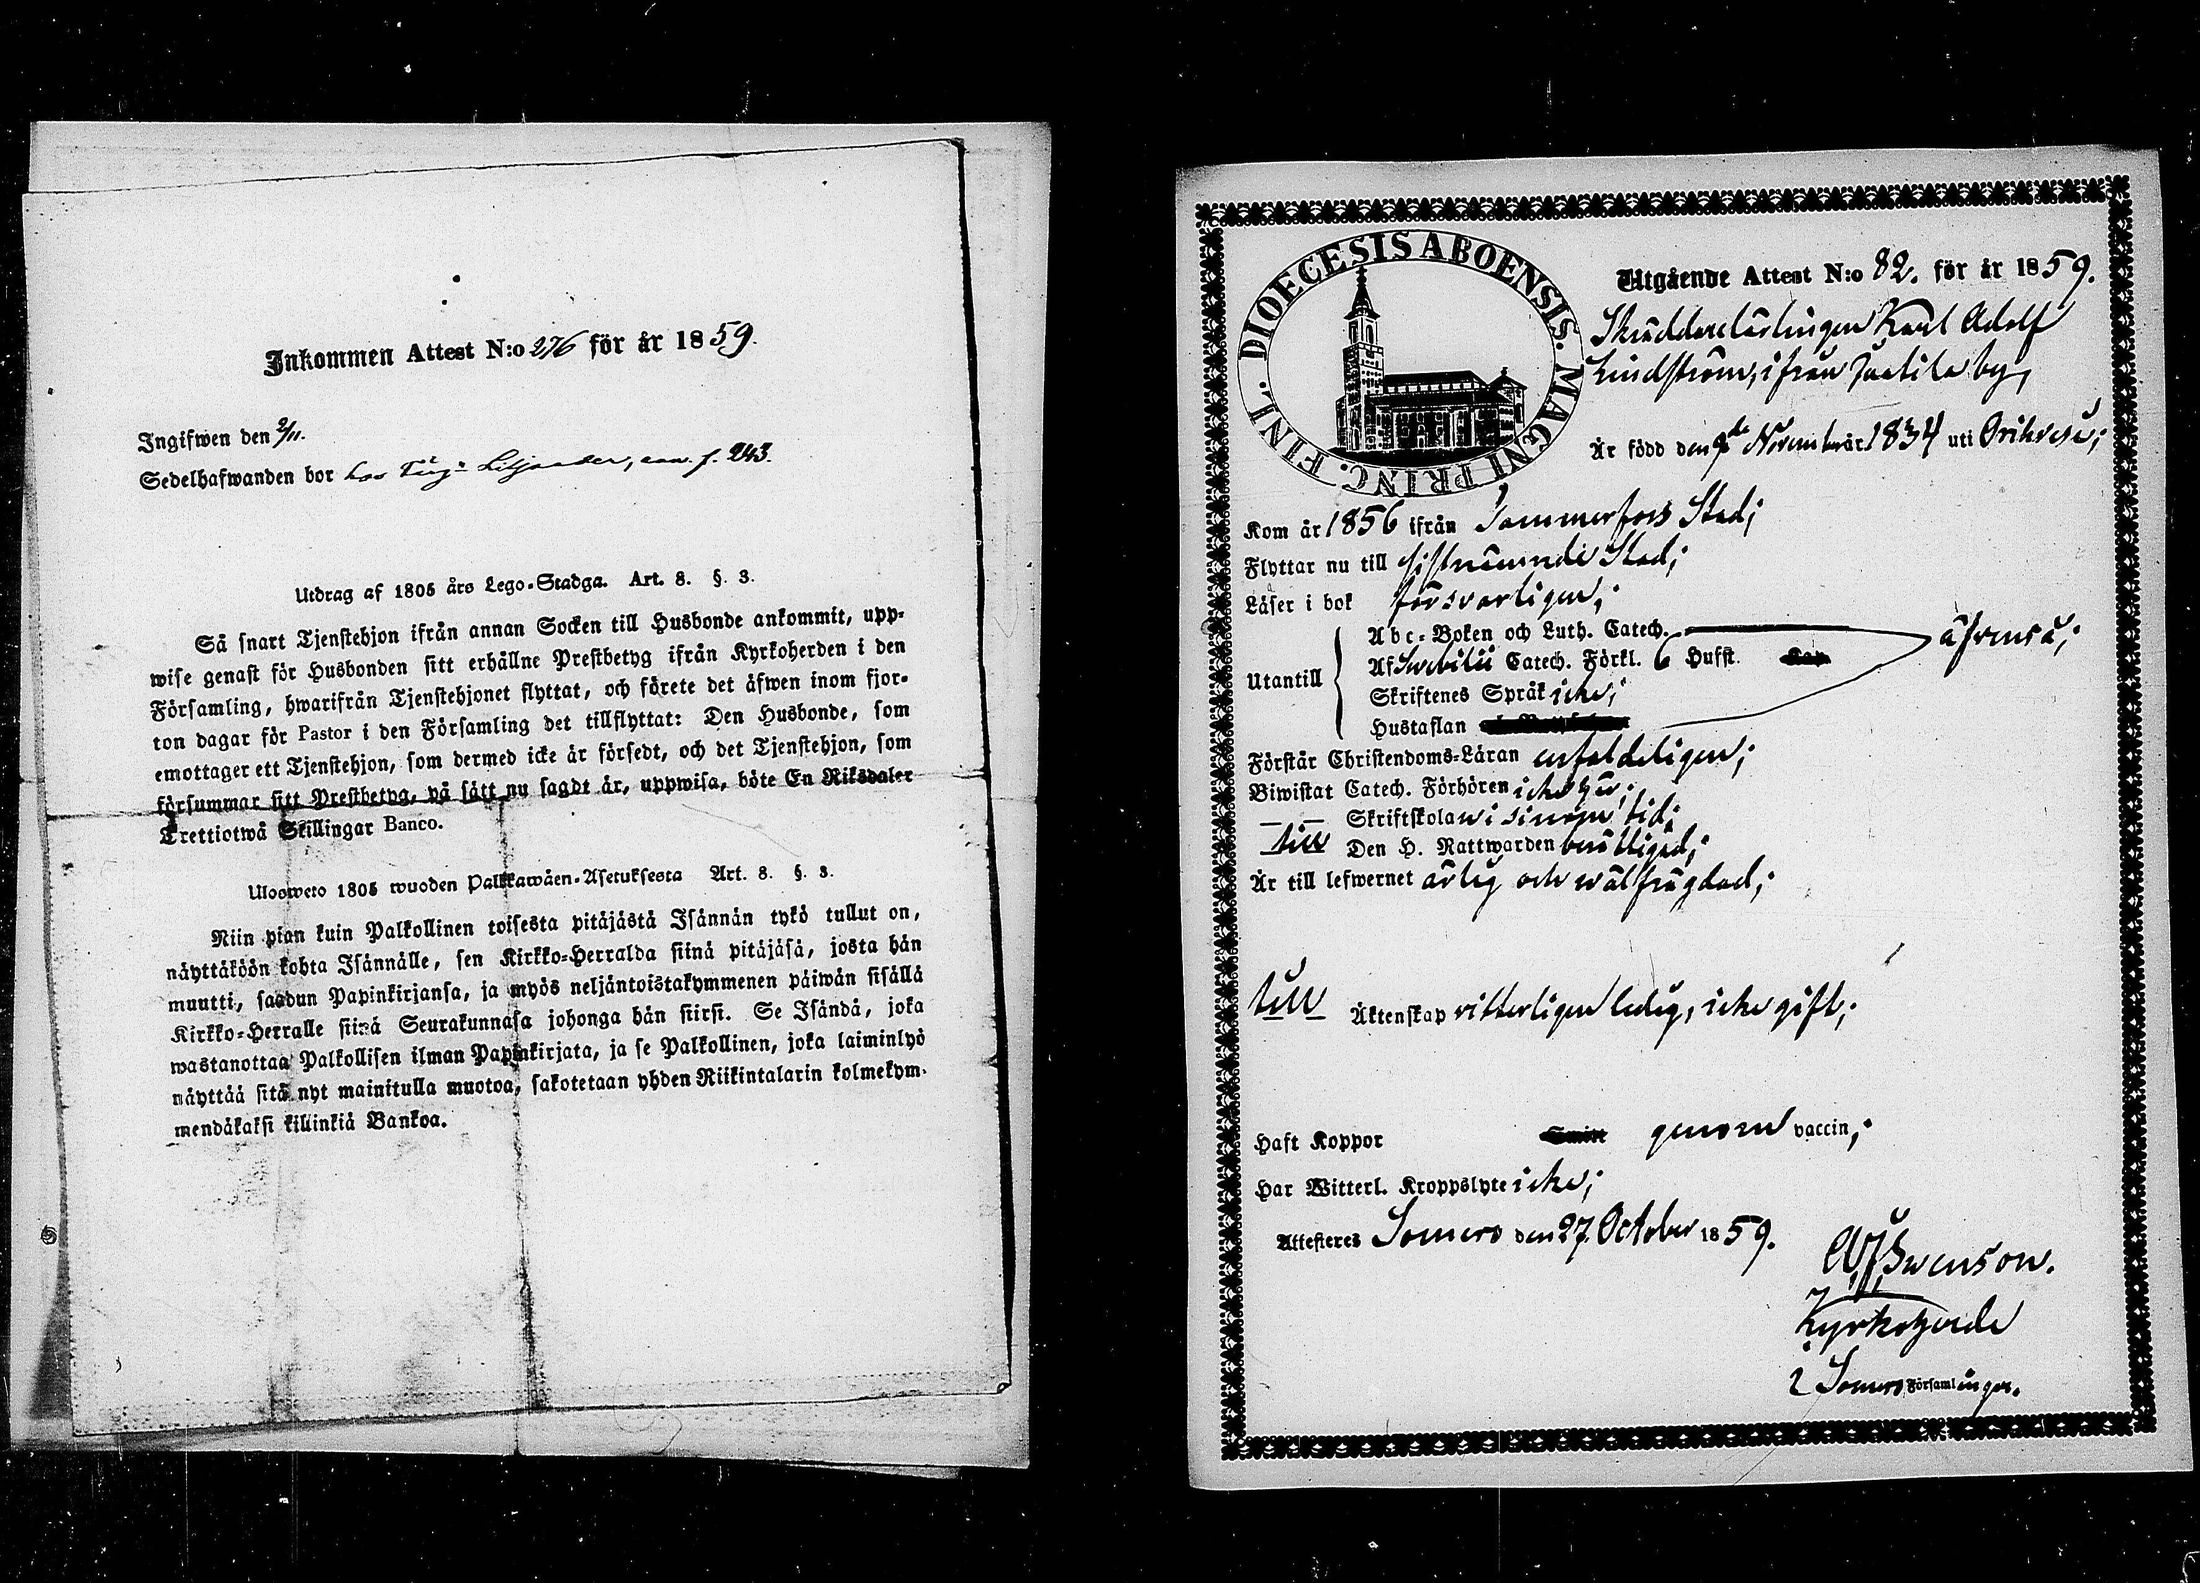 Inkommen Attest N:o 276 för år 1859.
Ingifwen den 2/11.
Sedelhafwanden bor hos Färg: Liljander, f. 243.
Utdrag af 1805 års Lego-Stadga. Art. 8. §. 3.
Så snart Tjenstehjon ifrån annan Socken till Husbonde ankommit, upp-
wise genast för Husbonden sitt erhållne Prestbetyg ifrån Kyrkoherden i den
Församling, hwarifrån Tjenstehjonet flyttat, och förete det äfwen inom fjor-
ton dagar för Pastor i den Församling det tillflyttat: Den Husbonde, som
emottager ett Tjenstehjon, som dermed icke är försedt, och det Tjenstehjon, som
försummar sitt Prestbetyg, på sätt nu sagdt är, uppwisa, böte En Riksdaler
Trettiotwå Skillingar Banco.
Ulosweto 1805 wuoden Palkkawäen-Asetuksesta Art. 8. §. 3.
Niin pian kuin Palkollinen toisesta pitäjästä Isännän tykö tullut on,
näyttäköön kohta Isännälle, sen Kirkko-Herralda siinä pitäjäsä, josta hän
muutti, saadun Papinkirjansa, ja myös neljäntoistakymmenen päiwän sisällä
Kirkko-Herralle siinä Seurakunnasa johonga hän siirsi. Se Isändä, joka
wastanottaa Palkollisen ilman Papinkirjata, ja se Palkollinen, joka laiminlyö
näyttää sitä nyt mainitulla muotoa, sakotetaan yhden Riikintalarin kolmekym-
mendäkaksi killinkiä Bankoa.
DIOECESIS ABOENSIS. MAGNI PRINC. FINL.
Utgående Attest N:o 82. för år 1859.
Skräddarelärlingen Karl Adolf
Lindström, ifrån Jaatila by,
Är född den 9de November 1834 uti Orihvesi;
Kom år 1856 ifrån Tammerfors Stad;
Flyttar nu till sistnämnde Stad;
Läser i bok försvarligen;
Utantill
Abc-Boken och Luth. Catech.
Af Svebilii Catech. Förkl. 6 Hufst. Kap
äfvenså;
Skriftenes Språk icke;
Hustaflan
Förstår Christendoms-Läran enfaldeligen;
Biwistat Catech. Förhören icke här;
— — Skriftskolan i sinom tid;
till Den H. Nattwarden berättigad;
Är till lefwernet ärlig och wälfrägdad;
till Äktenskap vitterligen ledig, icke gift;
Haft Koppor genom vaccin;
Har Witterl. Kroppslyte icke;
Attesteres Somero den 27. October 1859.
Swenson.
Kyrkoherde
i Somero Församlingar.